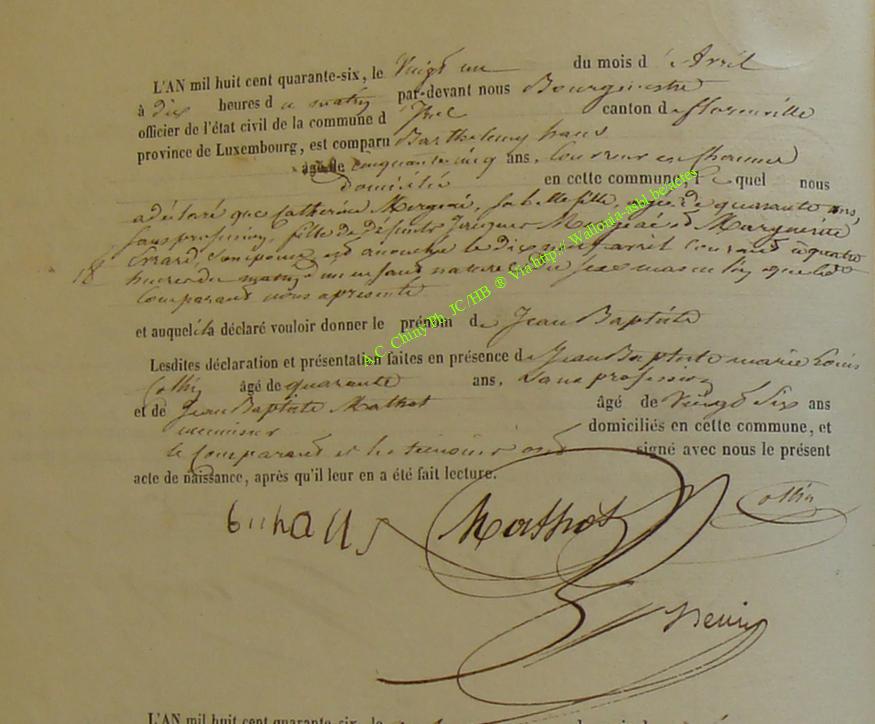 L'AN mil huit cent quarante-six, le Vingt un du mois d'Avril
à dix heures du matin par-devant nous Bourgmestre
officier de l'état civil de la commune d'Izel canton de florenville
province de Luxembourg, est comparu Barthelemy hans
âgé de cinquante cinq ans, Couvreur en Chaume
domicilié en cette commune, lequel nous
a déclaré que Catherine Mergeai, sa belle fille, agée de quarante ans,
sans profession, fille de défunts Jacques Mergeai et Marguerite
Evrard, son épouse est accouchée le dix neuf avril courant à quatre
18 heures du matin d'un enfant naturel du sexe masculin, que led
Comparant nous a presenté
et auquel il a déclaré vouloir donner le prénom de Jean Baptiste
Lesdites déclaration et présentation faites en présence de Jean Baptiste marie louis
Collin âgé de quarante ans, sans profession
et de Jean Baptiste Mathot âgé de Vingt Six ans
menuisier domiciliés en cette commune, et
le Comparant et les temoins ont signé avec nous le présent
acte de naissance, après qu'il leur en a été fait lecture.
Mathot Collin
A.C. Chiny Ph. JC/HB ® Via http:// Wallonia-asbl.be/actes
L'AN mil huit cent quarante-six, le